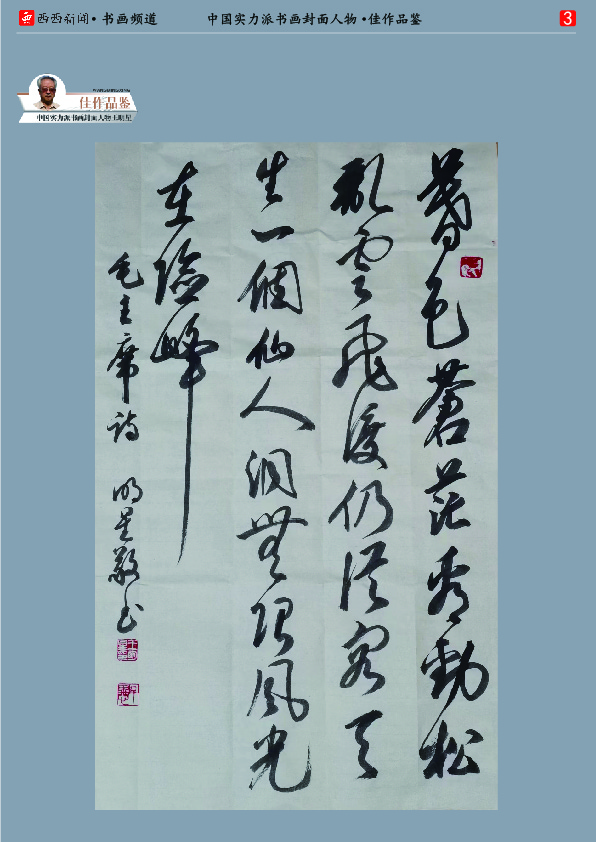 西西新闻•书画频道 中国实力派书画封面人物•佳作品鉴 3
WANGMINGXING
佳作品鉴
中国实力派书画封面人物王明星
暮色蒼茫看勁松
亂雲飛渡仍從容天
生一個仙人洞無限風光
在險峰
毛主席詩 明星敬书